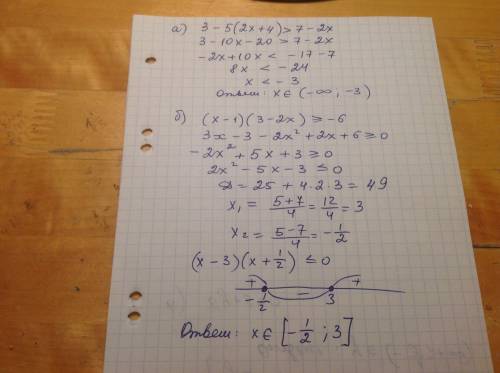 а) 3 - 5(2x+4) > 7 - 2x
3 - 10x - 20 > 7 - 2x
-2x + 10x < -17 - 7
8x < -24
x < -3
Ответ: x ∈ (-∞; -3)
б) (x-1)(3-2x) ≥ -6
3x - 3 - 2x² + 2x + 6 ≥ 0
-2x² + 5x + 3 ≥ 0
2x² - 5x - 3 ≤ 0
D = 25 + 4·2·3 = 49
x₁ = (5+7)/4 = 12/4 = 3
x₂ = (5-7)/4 = -1/2
(x-3)(x+1/2) ≤ 0
+ - +
-1/2 3
Ответ: x ∈ [-1/2; 3]